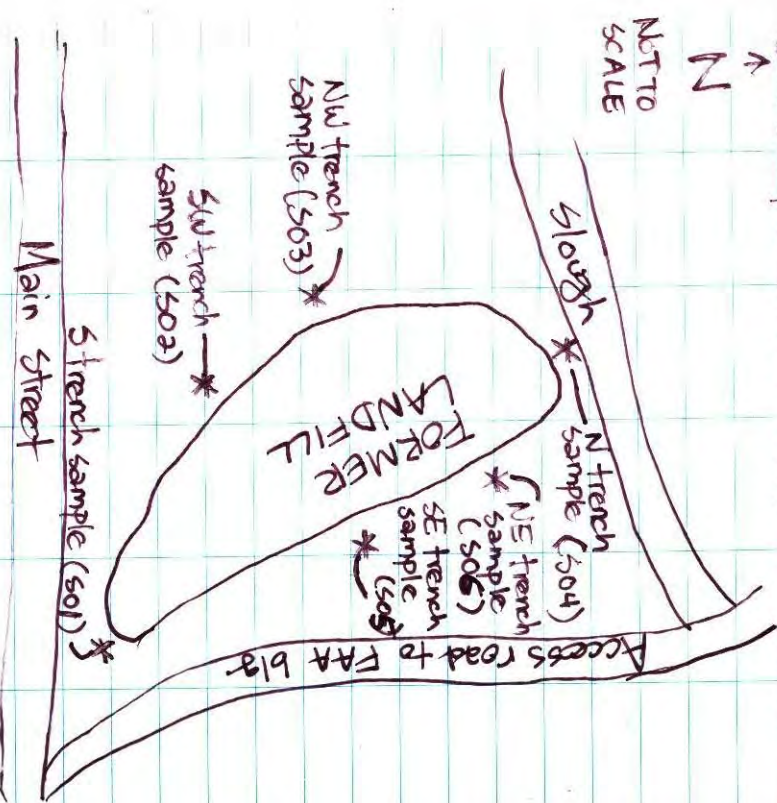 N
NOT TO
SCALE
Slough
NW trench
sample (S03)
SW trench
sample (S02)
S trench sample (S01)
Main Street
FORMER
LANDFILL
N trench
sample (S04)
NE trench
sample
(S06)
SE trench
sample
(S05)
Access road to FAA bldg